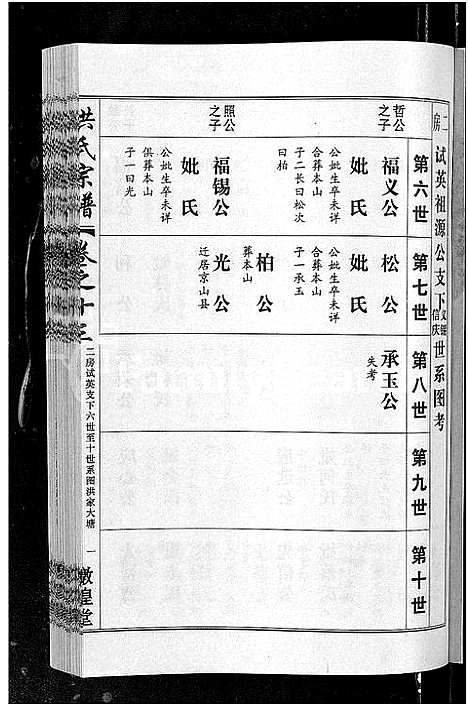 二房
试英祖源公支下义锡信庆世系图考
第六世
第七世
第八世
第九世
第十世
哲公之子
福义公
妣氏
公妣生卒未详
合葬本山
子二长曰松次
曰柏
松公
妣氏
公妣生卒未详
合葬本山
子一承玉
承玉公
失考
柏公
葬本山
照公之子
福锡公
妣氏
公妣生卒未详
俱葬本山
子一曰光
光公
迁居京山县
洪氏宗谱
卷之十三
二房试英支下六世至十世系图洪家大塘
一
敦煌堂